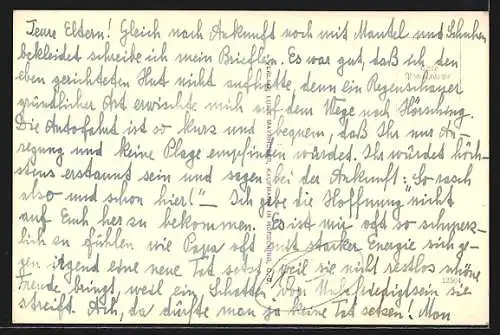 Teure Eltern! Gleich nach Ankunft noch mit Mantel und Schuhen
bekleidet schreibe ich mein Brieflein. Es war gut, daß ich den
eben gerichteten Hut nicht aufhatte, denn ein Regenschauer
gründlicher Art erwischte mich auf dem Wege nach Hörsching.
Die Autofahrt ist so kurz und bequem, daß Ihr nur An-
regung und keine Plage empfinden würdet. Ihr würdet höch-
stens erstaunt sein und sagen bei der Ankunft: "So rasch
also und schon hier!" – Ich gebe die Hoffnung nicht
auf Euch her zu bekommen. Es ist mir oft so schmerz-
lich zu fühlen wie Papa oft mit starker Energie sich ge-
gen irgend eine neue Tat setzt, weil sie nicht restlos schöne
Freude bringt, weil ein Schatten von Unzufriedigtsein sie
streift. Ach, da dürfte man ja keine Tat setzen. Man